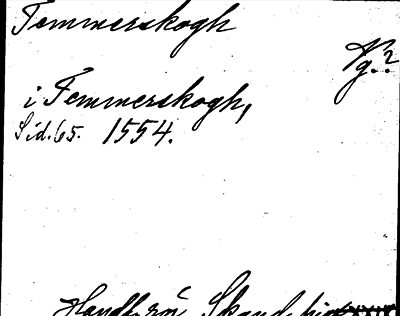 Femmerskogh
Ng.?
i Femmerskogh,
Sid. 65. 1554.
Handl. rör. Skand. hist